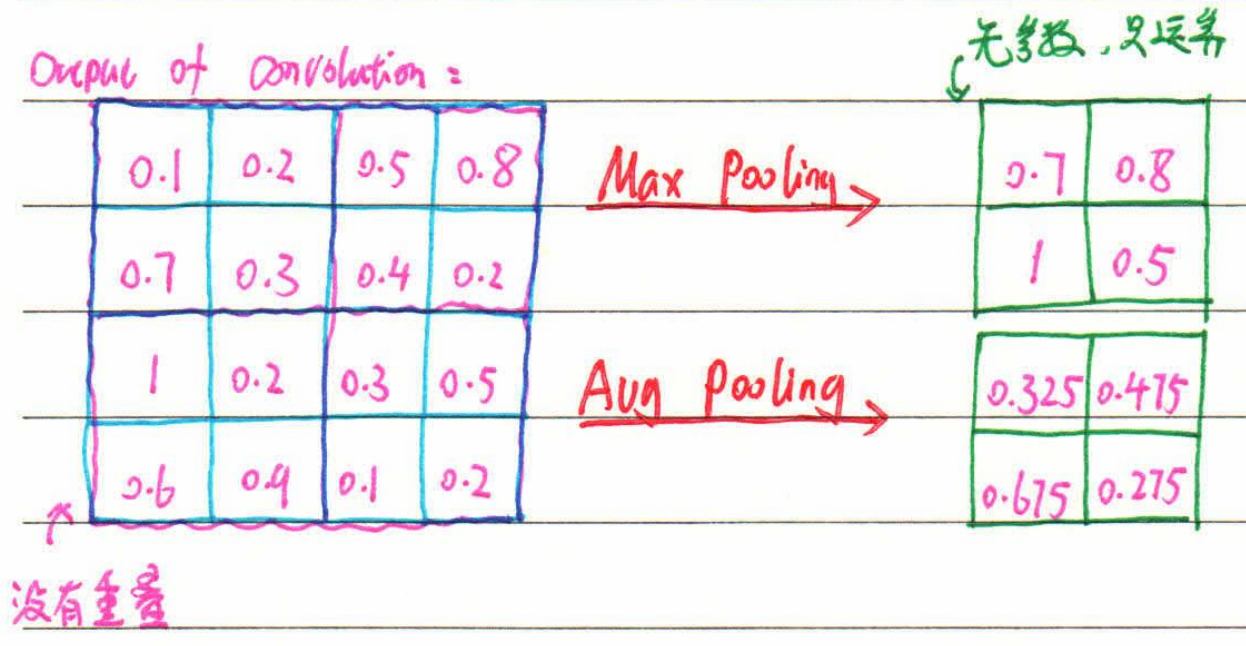 Output of Convolution:
无参数，只运算
0.1 0.2 0.5 0.8
0.7 0.3 0.4 0.2
1 0.2 0.3 0.5
0.6 0.9 0.1 0.2
Max Pooling
0.7 0.8
1 0.5
Avg Pooling
0.325 0.475
0.675 0.275
没有重叠